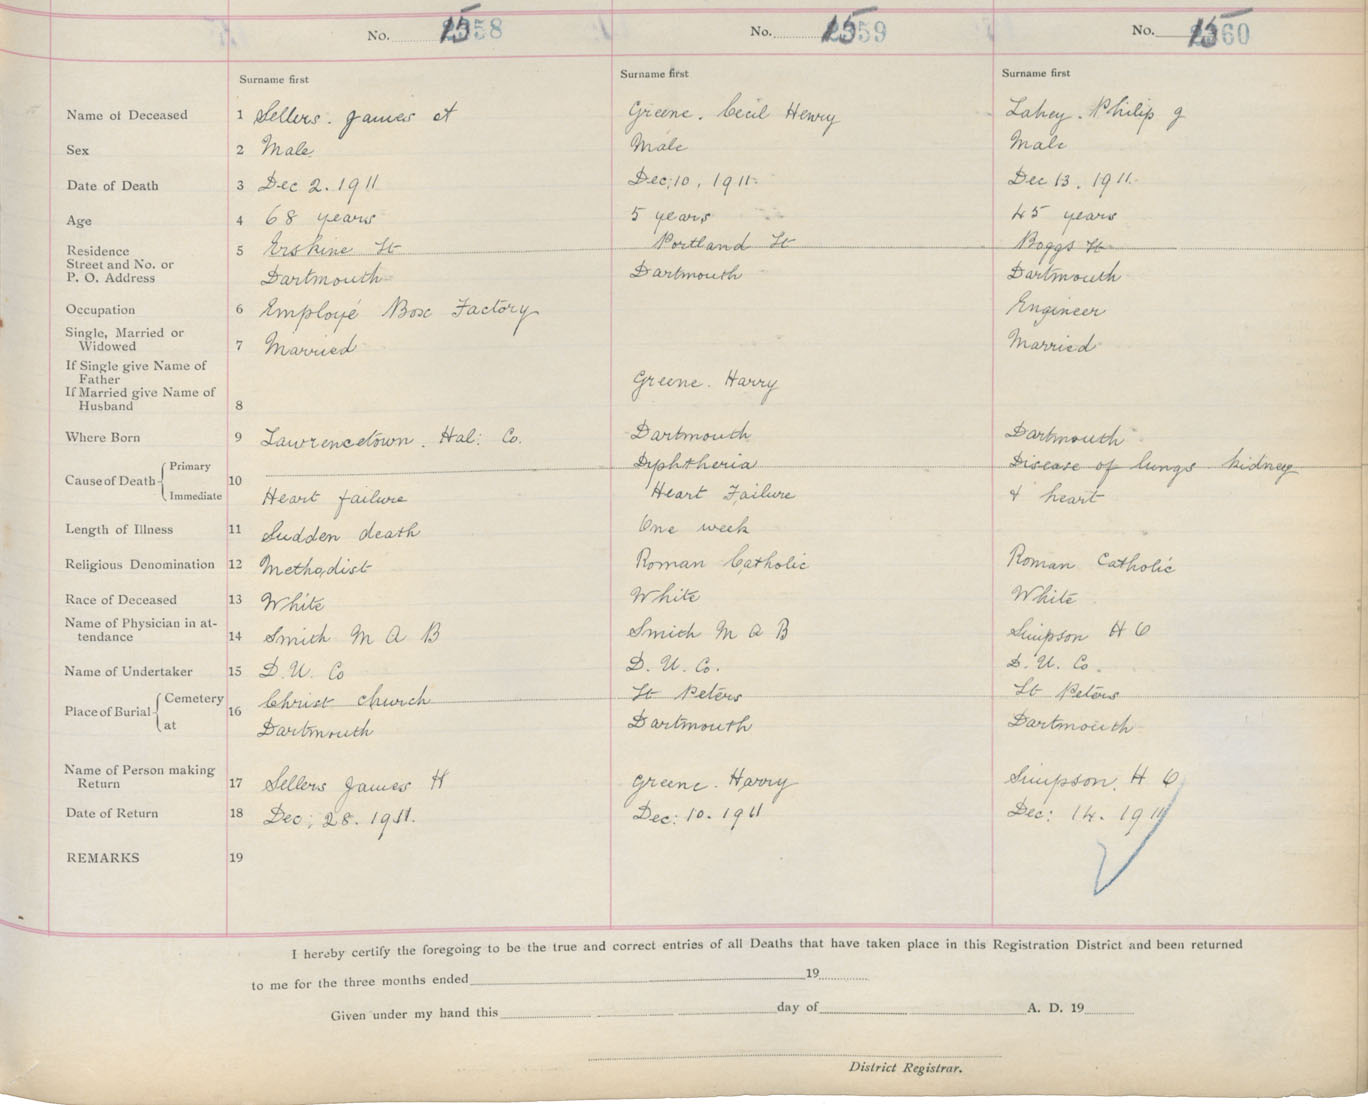 No. 1558 No. 1559 No. 1560
Surname first Surname first Surname first
Name of Deceased 1 Sellers. James A Greene. Cecil Henry Lahey. Philip J
Sex 2 Male Male Male
Date of Death 3 Dec 2. 1911 Dec. 10, 1911. Dec 13. 1911.
Age 4 68 years 5 years 45 years
Residence 5 Erskine St Portland St Boggs St
Street and No. or
P. O. Address Dartmouth Dartmouth Dartmouth
Occupation 6 Employé Box Factory Engineer
Single, Married or
Widowed 7 Married Married
If Single give Name of
Father Greene. Harry
If Married give Name of
Husband 8
Where Born 9 Lawrencetown. Hal: Co. Dartmouth Dartmouth
Cause of Death Primary 10 Dyphtheria Disease of lungs kidney
Immediate Heart failure Heart Failure & heart
Length of Illness 11 Sudden death One week
Religious Denomination 12 Methodist Roman Catholic Roman Catholic
Race of Deceased 13 White White White
Name of Physician in at-
tendance 14 Smith M A B Smith M A B Simpson H O
Name of Undertaker 15 D. U. Co D. U. Co. D. U. Co.
Place of Burial Cemetery 16 Christ Church St Peters St Peters
at Dartmouth Dartmouth Dartmouth
Name of Person making
Return 17 Sellers James H Greene. Harry Simpson. H O
Date of Return 18 Dec: 28. 1911. Dec: 10. 1911 Dec: 14. 1911
REMARKS 19
I hereby certify the foregoing to be the true and correct entries of all Deaths that have taken place in this Registration District and been returned
to me for the three months ended 19
Given under my hand this day of A. D. 19
District Registrar.